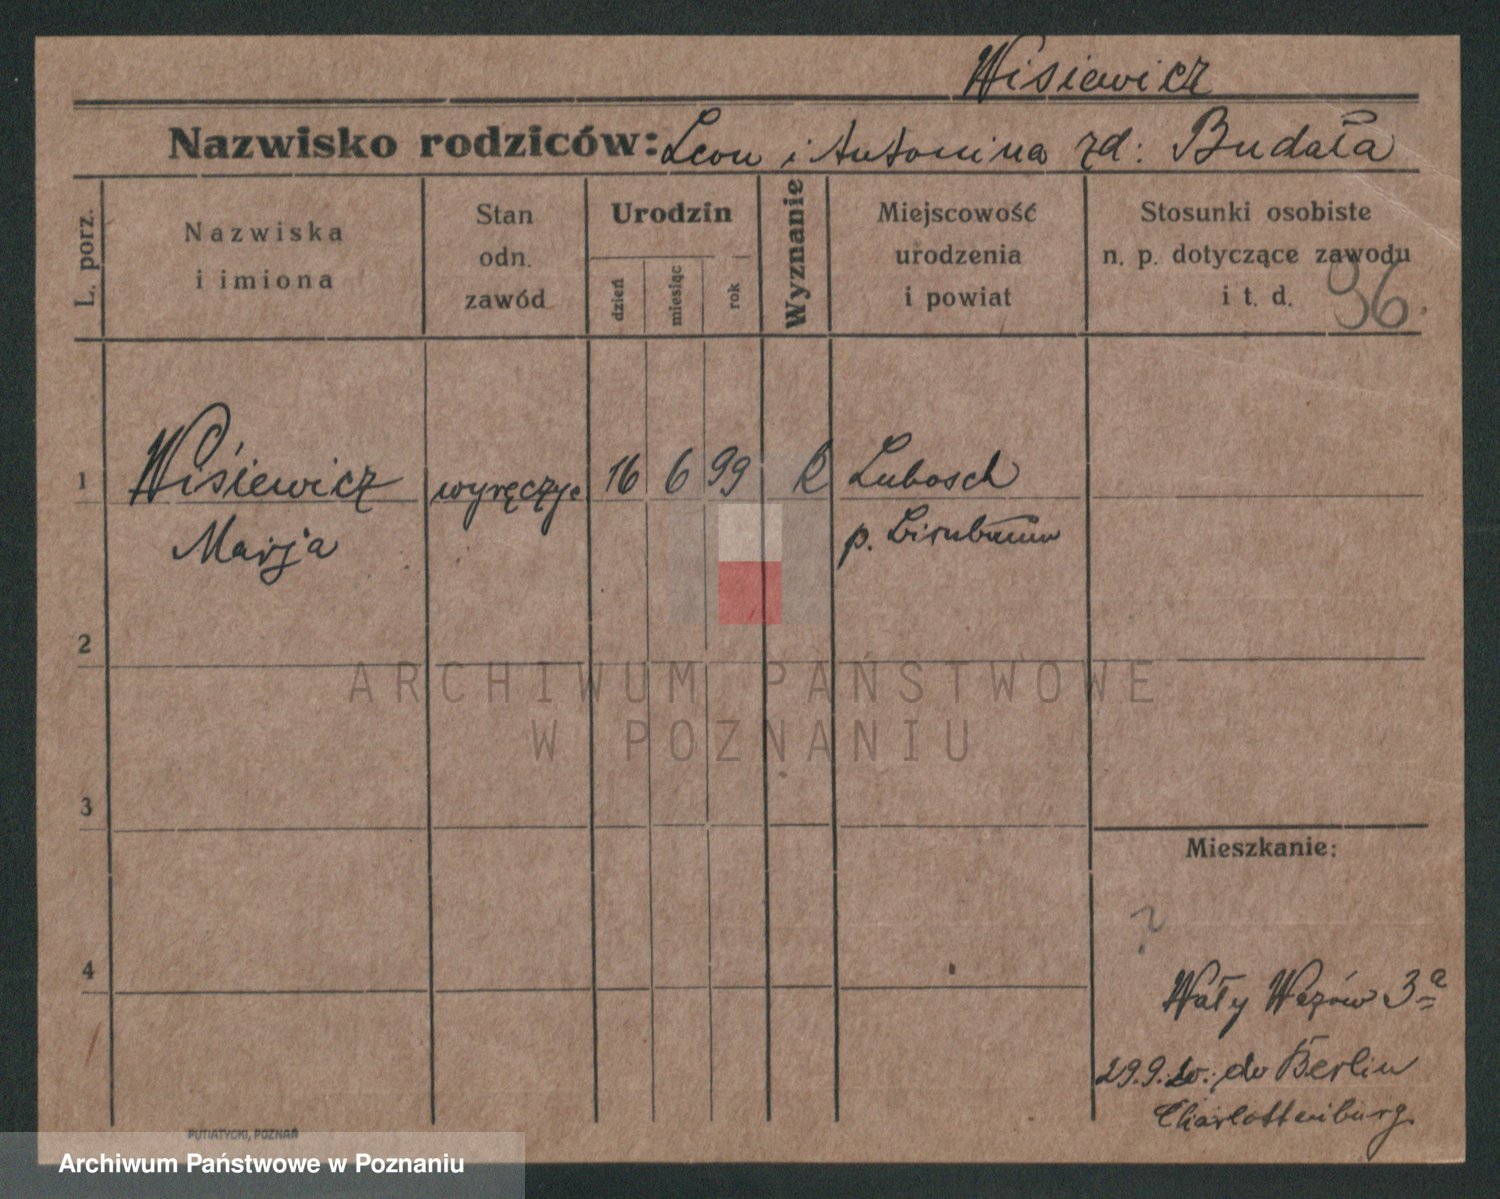 Wisiewicz
Nazwisko rodziców: Leon i Antonina zd: Budała
L. porz.
Nazwiska
i imiona
Stan
odn.
zawód
Urodzin
dzień
miesiąc
rok
Wyznanie
Miejscowość
urodzenia
i powiat
Stosunki osobiste
n. p. dotyczące zawodu
i t. d.
96.
1 Wiśiewicz wyręczyc. 16 6 99 k Lubosch
Marja p. Birnbaum
2
ARCHIWUM PAŃSTWOWE
W POZNANIU
3
Mieszkanie:
?
4
Wały Wazów 3a
29.9. do Berlin
Charlottenburg
PUTIATYCKI, POZNAŃ
Archiwum Państwowe w Poznaniu